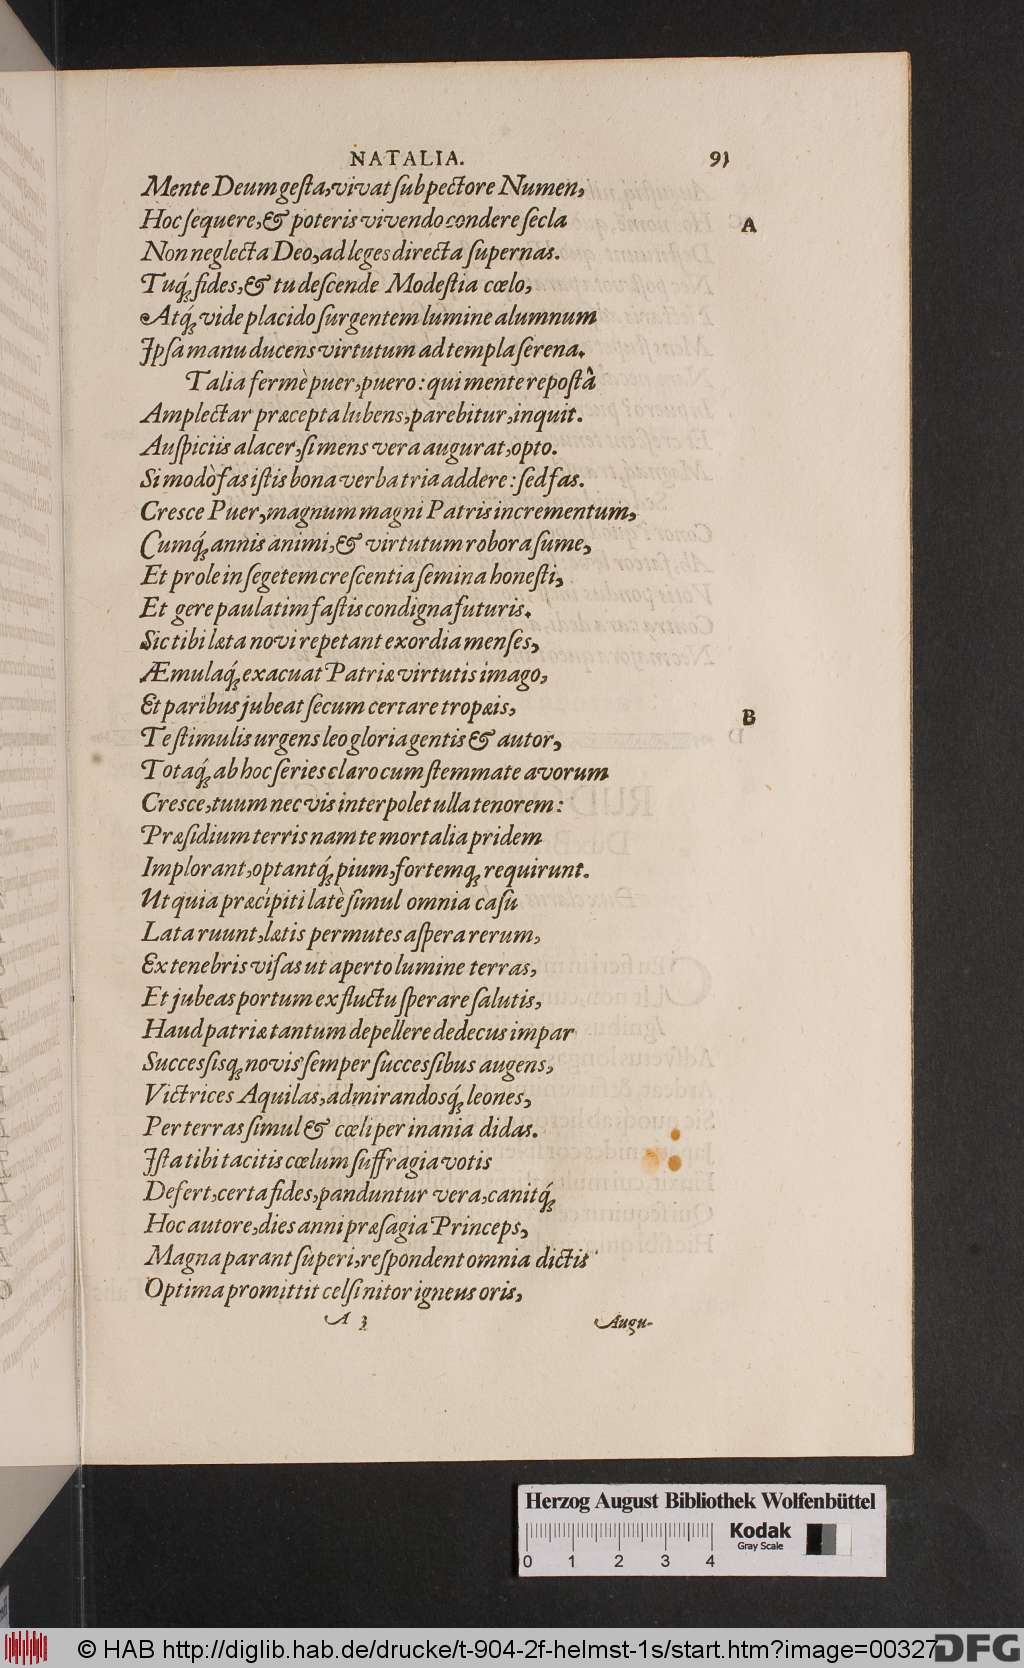 NATALIA. 91
Mente Deum gesta, vivat sub pectore Numen,
Hoc sequere, & poteris vivendo condere secla
A
Non neglecta Deo, ad leges directa supernas.
Tuq́; fides, & tu descende Modestia cœlo,
Atq́; vide placido surgentem lumine alumnum
Ipsa manu ducens virtutum ad templa serena.
Talia fermè puer, puero: qui mente repostâ
Amplectar præcepta lubens, parebitur, inquit.
Auspiciis alacer, si mens vera augurat, opto.
Si modò fas istis bona verba tria addere: sed fas.
Cresce Puer, magnum magni Patris incrementum,
Cumq́; annis animi, & virtutum robora sume,
Et prole in segetem crescentia semina honesti,
Et gere paulatim fastis condigna futuris.
Sic tibi læta novi repetant exordia menses,
Æmulaq́; exacuat Patriæ virtutis imago,
Et paribus jubeat secum certare tropæis,
B
Te stimulis urgens leo gloria gentis & autor,
Totaq́; ab hoc series claro cum stemmate avorum
Cresce, tuum nec vis interpolet ulla tenorem:
Præsidium terris nam te mortalia pridem
Implorant, optantq́; pium, fortemq; requirunt.
Ut quia præcipiti latè simul omnia casu
Lata ruunt, lætis permutes aspera rerum,
Ex tenebris visas ut aperto lumine terras,
Et jubeas portum ex fluctu sperare salutis,
Haud patriæ tantum depellere dedecus impar
Successisq; novis semper successibus augens,
Victrices Aquilas, admirandosq́; leones,
Per terras simul & cœli per inania didas.
Ista tibi tacitis cœlum suffragia votis
Defert, certa fides, panduntur vera, canitq́;
Hoc autore, dies anni præsagia Princeps,
Magna parant superi, respondent omnia dictis
Optima promittit celsi nitor igneus oris,
A 3 Augu-
Herzog August Bibliothek Wolfenbüttel
0 1 2 3 4
Kodak
Gray Scale
© HAB http://diglib.hab.de/drucke/t-904-2f-helmst-1s/start.htm?image=00327
DFG